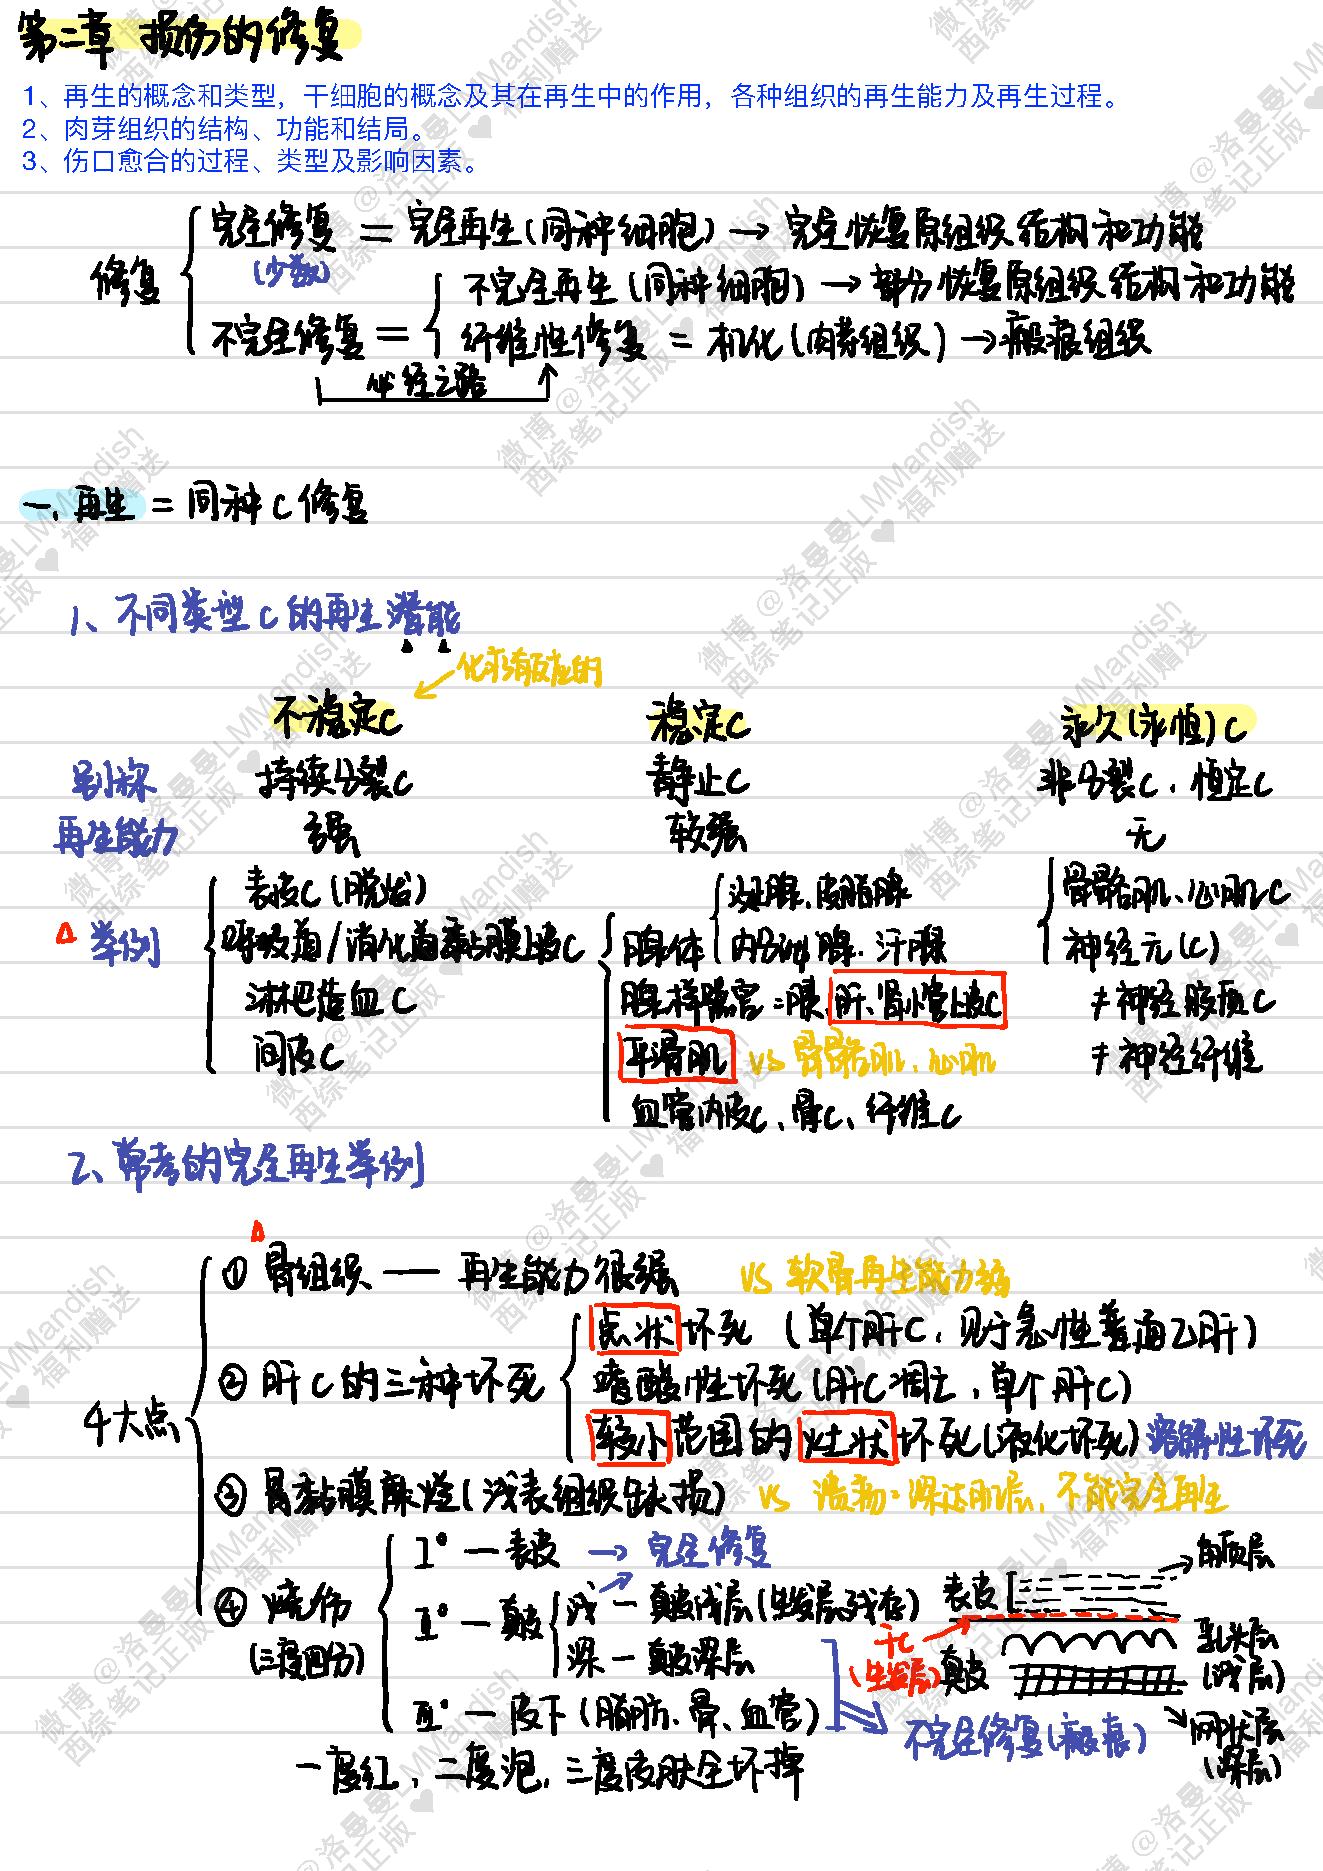 第二章 损伤的修复
1、再生的概念和类型，干细胞的概念及其在再生中的作用，各种组织的再生能力及再生过程。
2、肉芽组织的结构、功能和结局。
3、伤口愈合的过程、类型及影响因素。
完全修复 = 完全再生（同种细胞）→ 完全恢复原组织结构和功能
（少数）
修复
不完全再生（同种细胞）→ 部分恢复原组织结构和功能
不完全修复 = 纤维性修复 = 机化（肉芽组织）→ 瘢痕组织
必经之路
一、再生 = 同种C修复
1、不同类型C的再生潜能
化疗有反应的
不稳定C 稳定C 永久（永恒）C
别称 持续分裂C 静止C 非分裂C、恒定C
再生能力 强 较强 无
△ 举例
表皮C（脱发）
呼吸道/消化道黏膜上皮C
淋巴造血C
间皮C
腺体 涎腺、皮脂腺
内分泌腺、汗腺
腺样器官=胰、肝、肾小管上皮C
平滑肌 vs 骨骼肌、心肌
血管内皮C、骨C、纤维C
骨骼肌、心肌C
神经元（C）
≠神经胶质C
≠神经纤维
2、常考的完全再生举例
4大点
△
① 骨组织 — 再生能力很强 vs 软骨再生能力弱
② 肝C的三种坏死
点状坏死（单个肝C，见于急性普通乙肝）
嗜酸性坏死（肝C凋亡，单个肝C）
较小范围的灶状坏死（液化坏死）溶解性坏死
③ 胃黏膜糜烂（浅表组织缺损） vs 溃疡：深达肌层，不能完全再生
④ 烧伤
（三度四分）
Ⅰ° — 表皮 → 完全修复
Ⅱ° — 真皮
浅 — 真皮浅层（生发层残存）
深 — 真皮深层
Ⅲ° — 皮下（脂肪、骨、血管）
不完全修复（瘢痕）
一度红，二度泡，三度皮肤全坏掉
角质层
表皮
干C
（生发层）
真皮
乳头层
（浅层）
网状层
（深层）
微博@洛曼曼LMMandish
西综笔记正版♥福利赠送